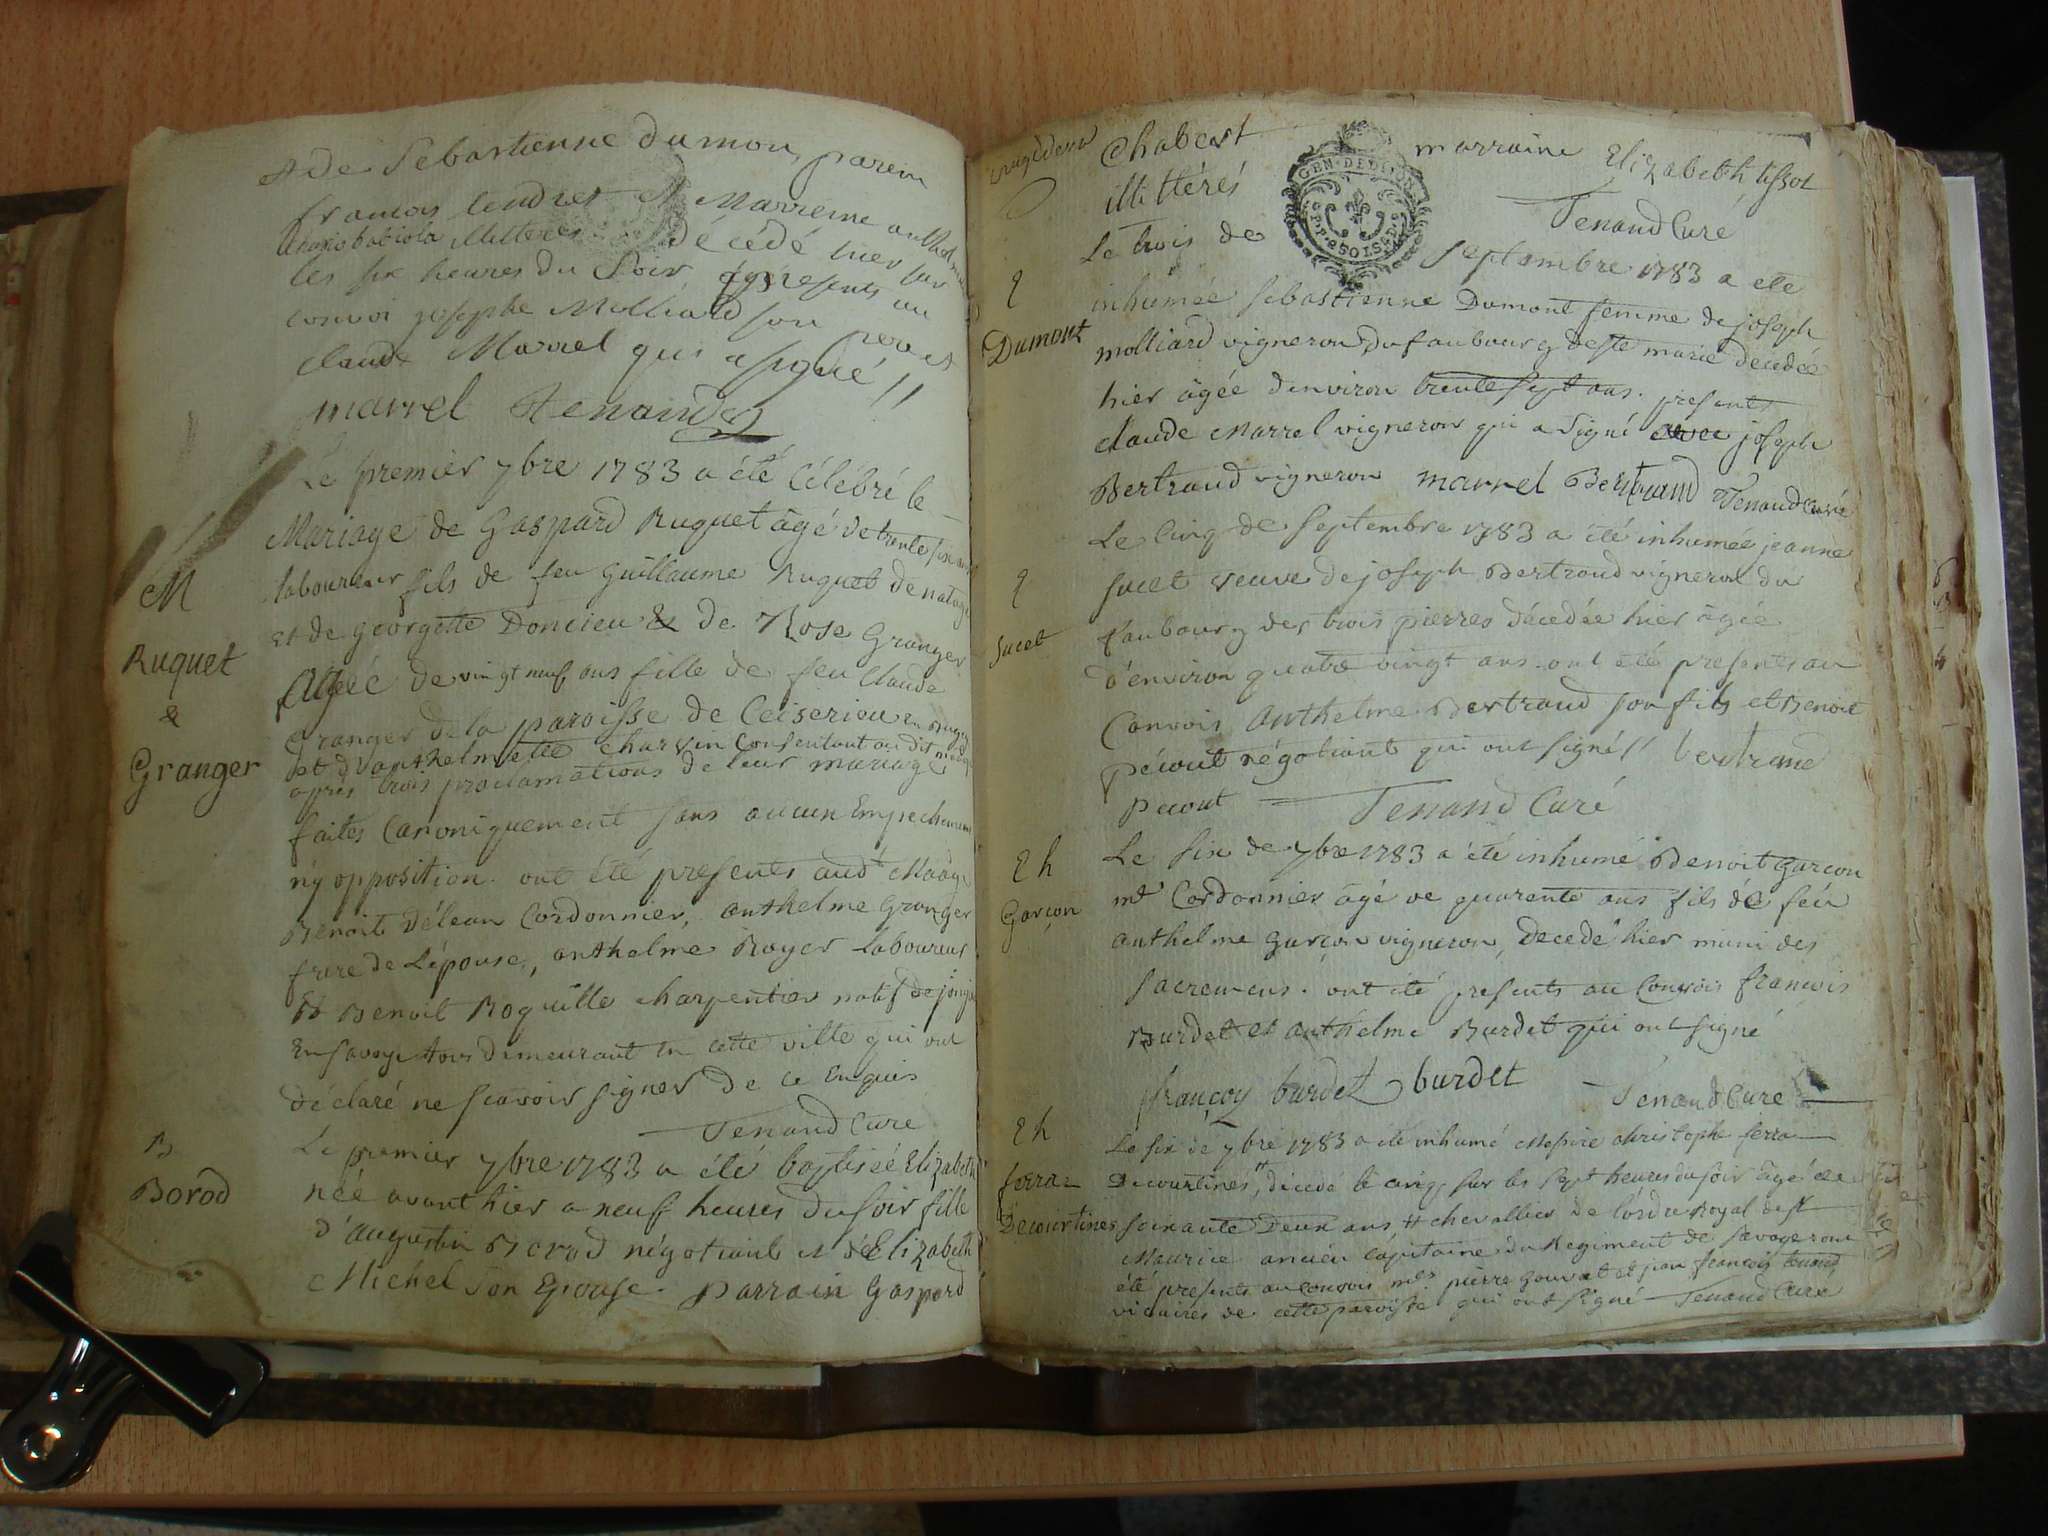 Et De Sebastienne dumon, parein
francois tendret Et Marreine
illitteres décédé hier sur
les six heures du Soir présents au
convoi joseph Molliard son pere et
claude Marrel qui a signé //
marrel Tenand
Le premier 7bre 1783 a été Célébré le
Mariage de Gaspard Ruquet âgé de trente six ans
laboureur fils de feu Guillaume Ruquet de natage
Et de georgette Doncieu & de Rose Granger
Agéé de vingt neuf ans fille de feu Claude
Granger de la paroisse de Ceiserieu en Bugey
et d'anthelmette charvin Consentant au dit
après trois proclamations de leur mariage
faites Canoniquement sans aucun Empechement
ny opposition. ont été présents aud Mariage
Benoit Délean Cordonnier, anthelme Granger
frere de L'épouse, anthelme Royer Laboureur
Et Benoit Roquille charpentier natif de
En savoye tous demeurant en cette ville qui ont
déclaré ne scavoir signer de ce Enquis
Tenand Curé
Le premier 7bre 1783 a été baptiséé Elizabeth
néé avant hier a neuf heures du soir fille
d'augustin Borod négotiant et de Elizabeth
Michel Son Epouse. parrain Gaspard
M
Ruquet
&
Granger
B
Borod
Chabert marraine Elizabeth tissot
illittérés Tenand Curé
GEN. DE DIJON
Le trois de Septembre 1783 a été
inhumée sebastienne Dumont femme de joseph
molliard vigneron du faubourg de ste marie decedée
hier âgée d'environ trente sept ans. presents
claude Marrel vigneron qui a signé avec joseph
Bertrand vigneron marrel Bertrand Tenand curé
Le Cinq de Septembre 1783 a été inhumée jeanne
Sucet veuve de joseph Bertrand vigneron du
faubourg des trois pierres décedée hier âgée
d'environ quatre vingt ans. ont été présents au
Convoi Anthelme Bertrand son fils et Benoit
pécout négotiant qui ont signés // bertrand
pecout Tenand Curé
Le six de 7bre 1783 a été inhumé Benoit Garcon
mtre Cordonnier âgé de quarente ans fils de feu
anthelme Garçon vigneron, décedé hier muni des
sacremens. ont été présents au Convoi francois
Burdet et anthelme Burdet qui ont signé
françoy burdet burdet Tenand Curé
Le six de 7bre 1783 a été inhumé Messire christophe ferra
Decourtines, décédé le cinq sur les sept heures du soir âgé de
soixante Deux ans # chevallier de l'ordre Royal de st
Maurice ancien Capitaine du Regiment de Savoye ont
été présents au convoi mrs pierre Gouvat et jean françois tenand
vicaires de cette paroisse qui ont signé Tenand Curé
Dumont
Sucet
Garçon
ferra
Decourtines